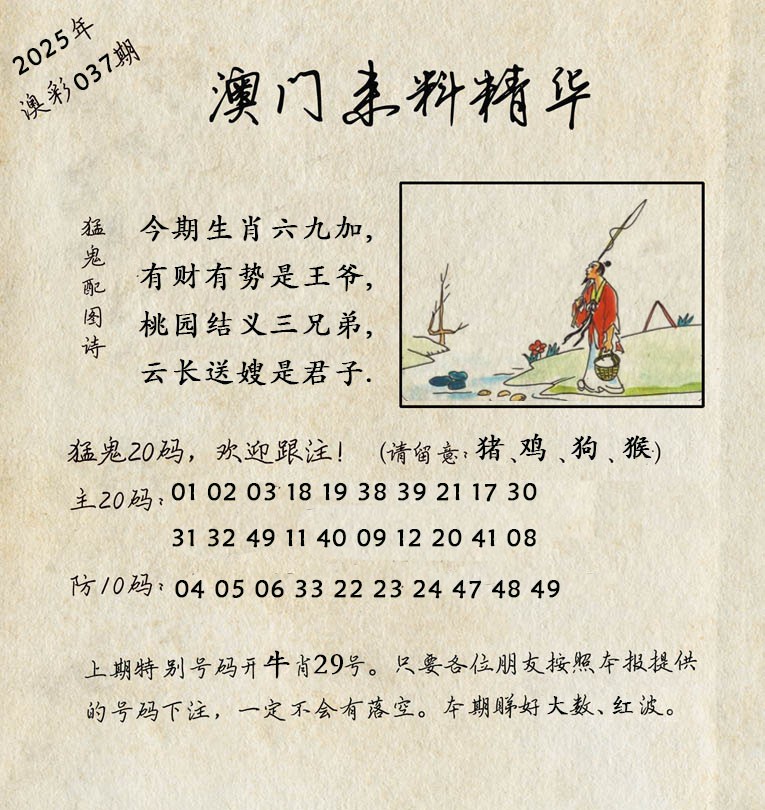 2025年
澳彩037期
澳门来料精华
猛鬼配图诗
今期生肖六九加,
有财有势是王爷,
桃园结义三兄弟,
云长送嫂是君子.
猛鬼20码，欢迎跟注！（请留意：猪、鸡、狗、猴）
主20码：01 02 03 18 19 38 39 21 17 30
31 32 49 11 40 09 12 20 41 08
防10码：04 05 06 33 22 23 24 47 48 49
上期特别号码开牛肖29号。只要各位朋友按照本报提供
的号码下注，一定不会有落空。本期睇好大数、红波。